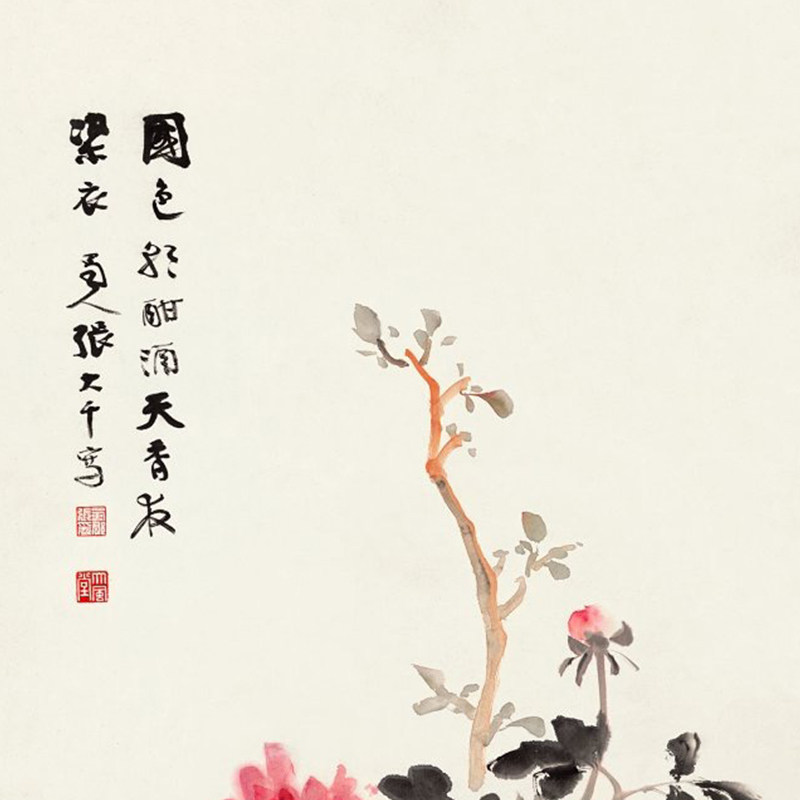 國色朝酣酒天香夜
染衣 蜀人張大千寫
大風堂